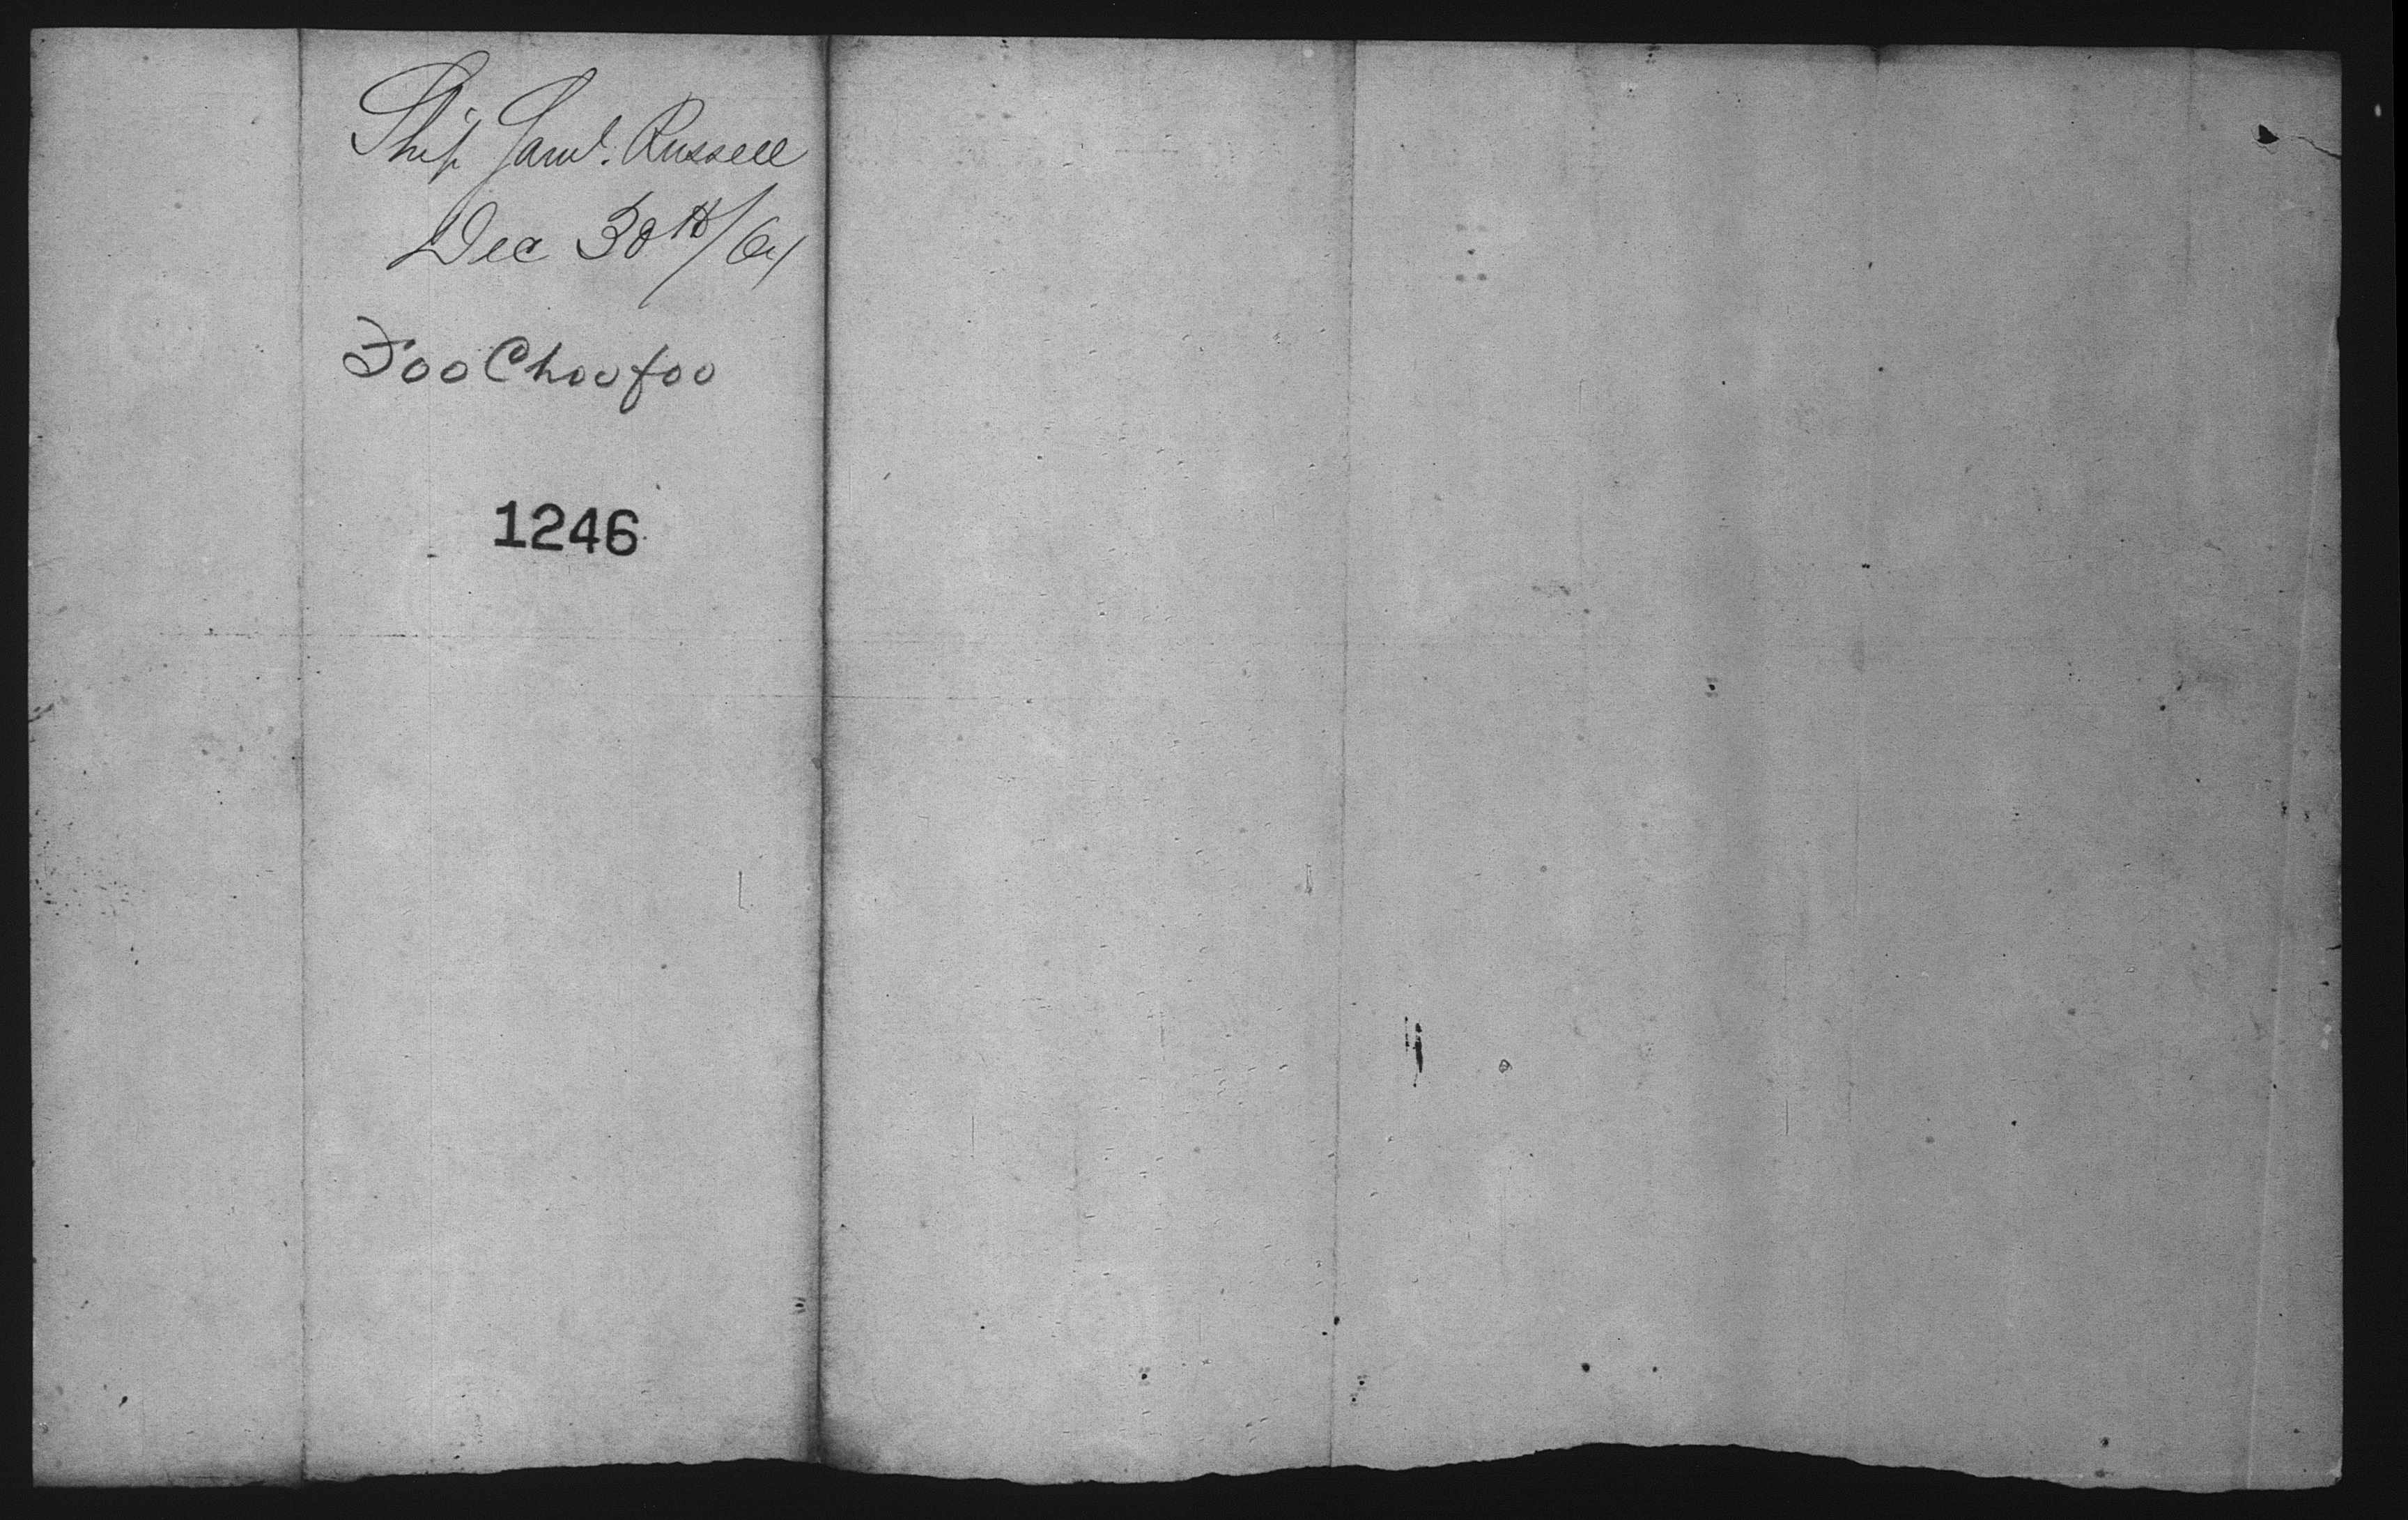 Ship Saml. Russell
Dec 30th/64
Foo Choo foo
1246